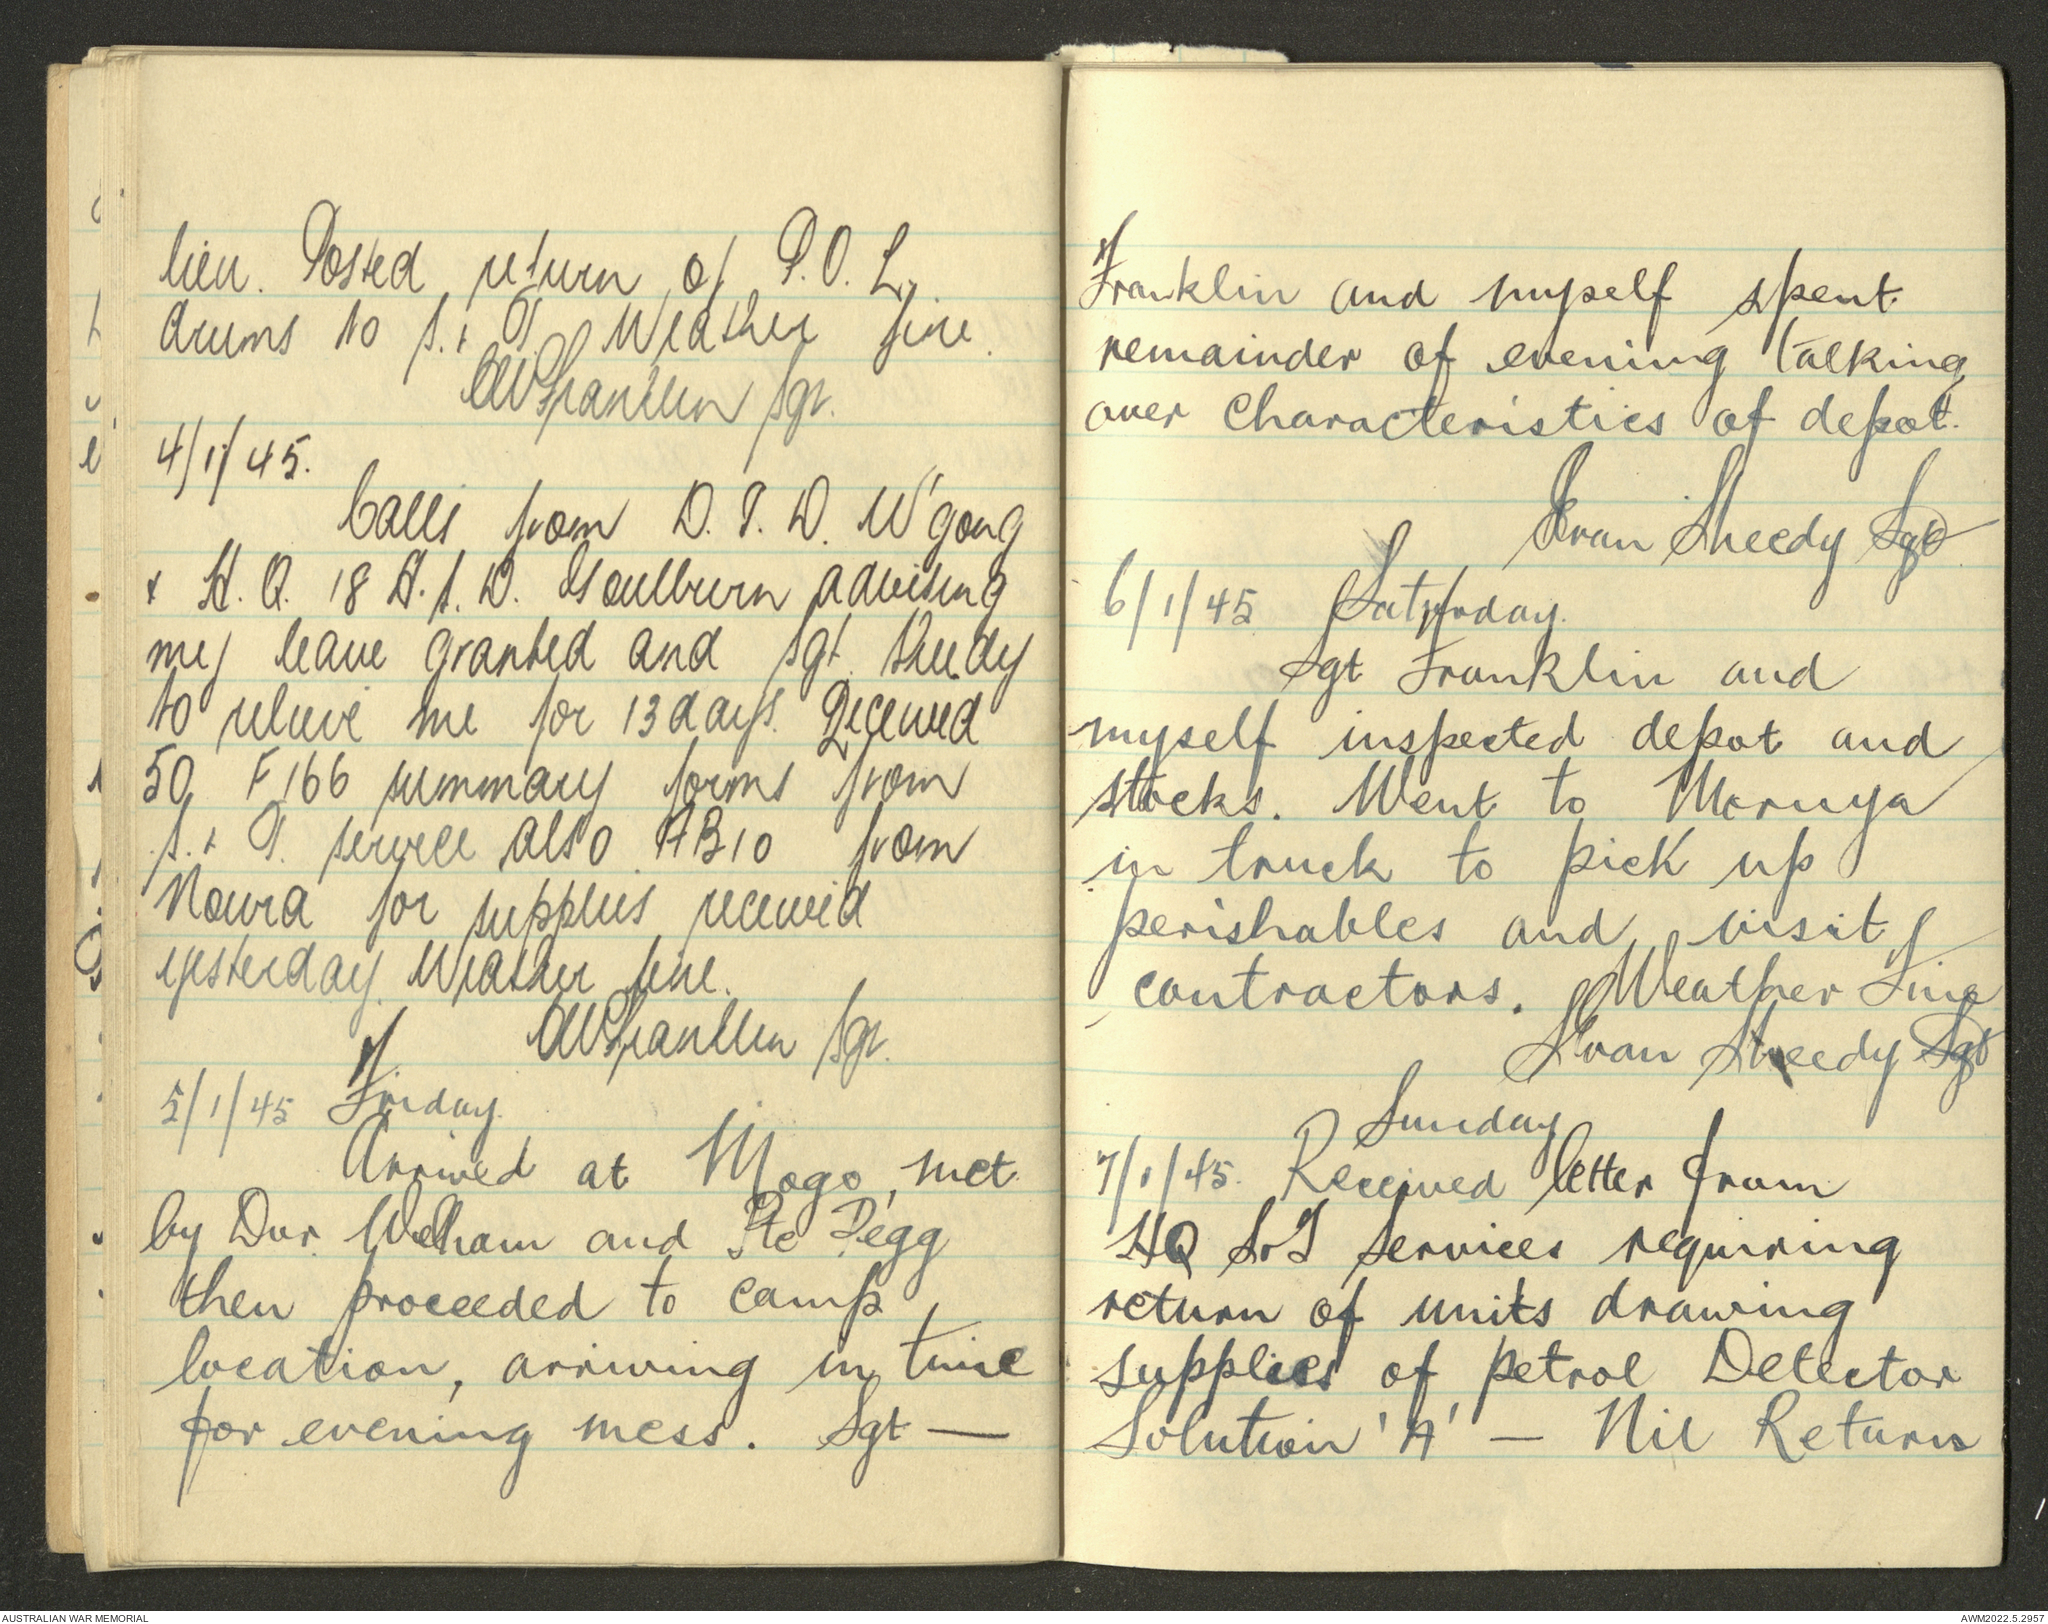 lieu. Posted return of P.O.L.
drums to S. & T. Weather fine.
AW Franklin Sgt.
4/1/45.
Calls from D.S.D. W'gong
& H.Q. 18 A.S.D. Goulburn advising
my leave granted and Sgt. Sheedy
to relieve me for 13 days. Received
50 F166 summary forms from
S. & T. service also AB10 from
Nowra for supplies received
yesterday. Weather fine.
AW Franklin Sgt.
5/1/45 Friday.
Arrived at Mogo, met
by Dvr. Welham and Pte Pegg
then proceeded to camp
location, arriving in time
for evening mess. Sgt —
Franklin and myself spent
remainder of evening talking
over characteristics of depot.
Ivan Sheedy Sgt
6/1/45 Saturday.
Sgt Franklin and
myself inspected depot and
stocks. Went to Moruya
in truck to pick up
perishables and visit
contractors. Weather Fine
Ivan Sheedy Sgt
Sunday
7/1/45. Received letter from
HQ S&T Services requiring
return of units drawing
supplies of petrol Detector
Solution 'A' — Nil Return
AUSTRALIAN WAR MEMORIAL
AWM2022.5.2957